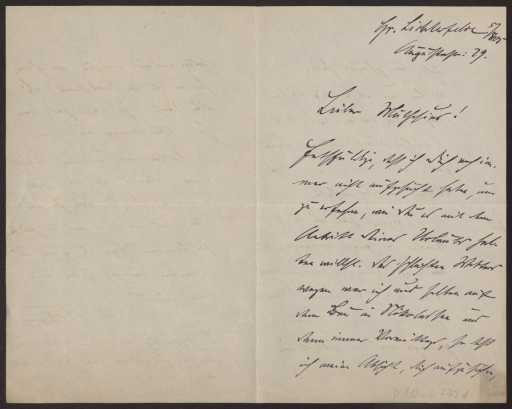 Gr. Lichterfelde 5/
Augustastr. 29.
Lieber Muthesius!
Entschuldige, daß ich Dich noch im-
mer nicht aufgesucht habe, um
zu erfahren, wie Du es mit dem
Antritt Deines Urlaubs hal-
ten willst. Des schlechten Wetters
wegen war ich nur selten auf
dem Bau in Nikolassee und
dann immer Vormittags, so daß
ich meine Absicht, Dich aufzusuchen,